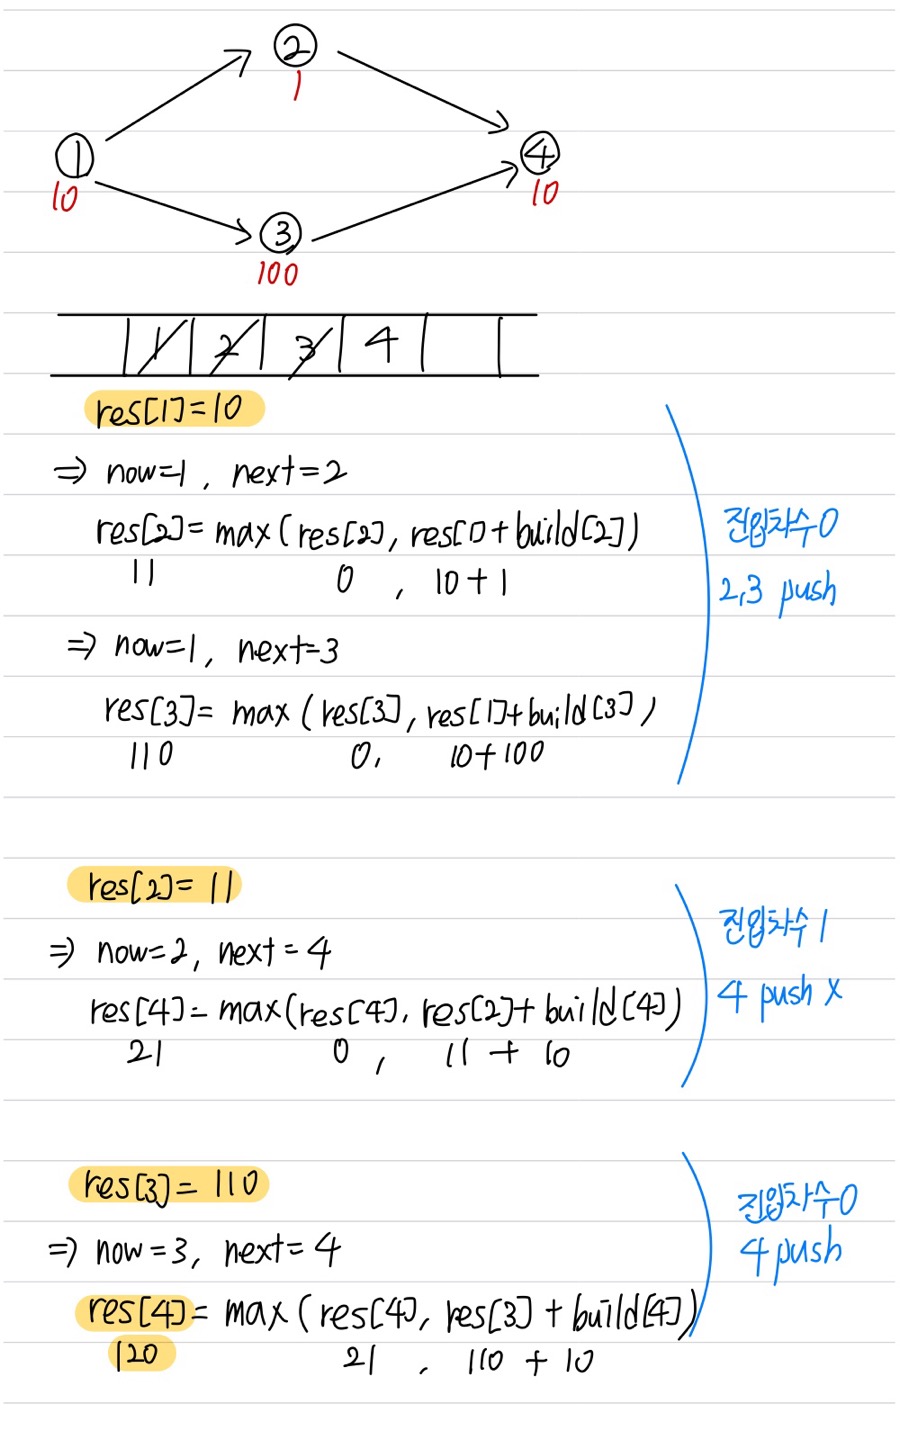 2
1
1
4
10
10
3
100
1 2 3 4
res[1]=10
⇒ now=1, next=2
res[2]= max(res[2], res[]+build[2])
11 0 , 10+1
진입차수0
2,3 push
⇒ now=1, next=3
res[3]= max(res[3], res[1]+build[3])
110 0, 10+100
res[2]= 11
⇒ now=2, next=4
res[4]= max(res[4], res[2]+build[4])
21 0 , 11 + 10
진입차수1
4 push x
res[3]= 110
⇒ now=3, next=4
res[4]= max(res[4], res[3]+build[4])
120 21 , 110 + 10
진입차수0
4 push